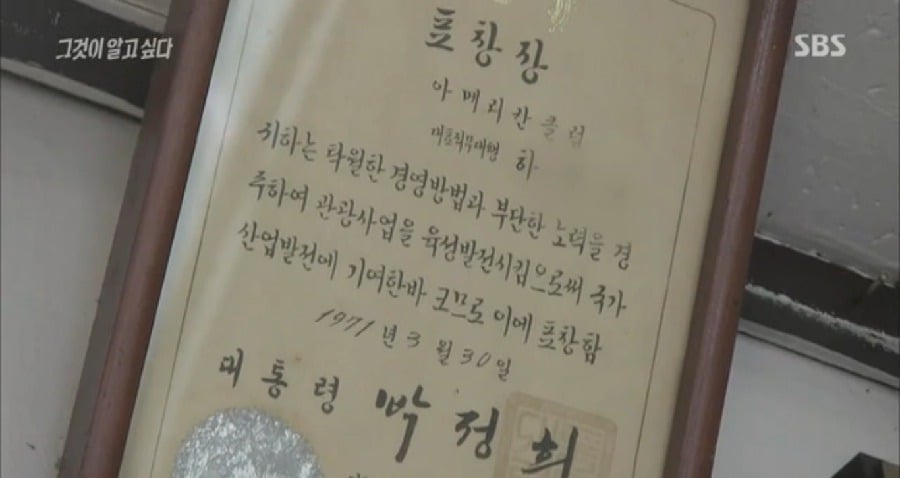 그것이 알고싶다
SBS
표창장
아메리칸클럽
대표직무대행 하
귀하는 탁월한 경영방법과 부단한 노력을 경
주하여 관광사업을 육성발전시킴으로써 국가
산업발전에 기여한바 크므로 이에 표창함
1971년 3월 30일
대통령 박정희